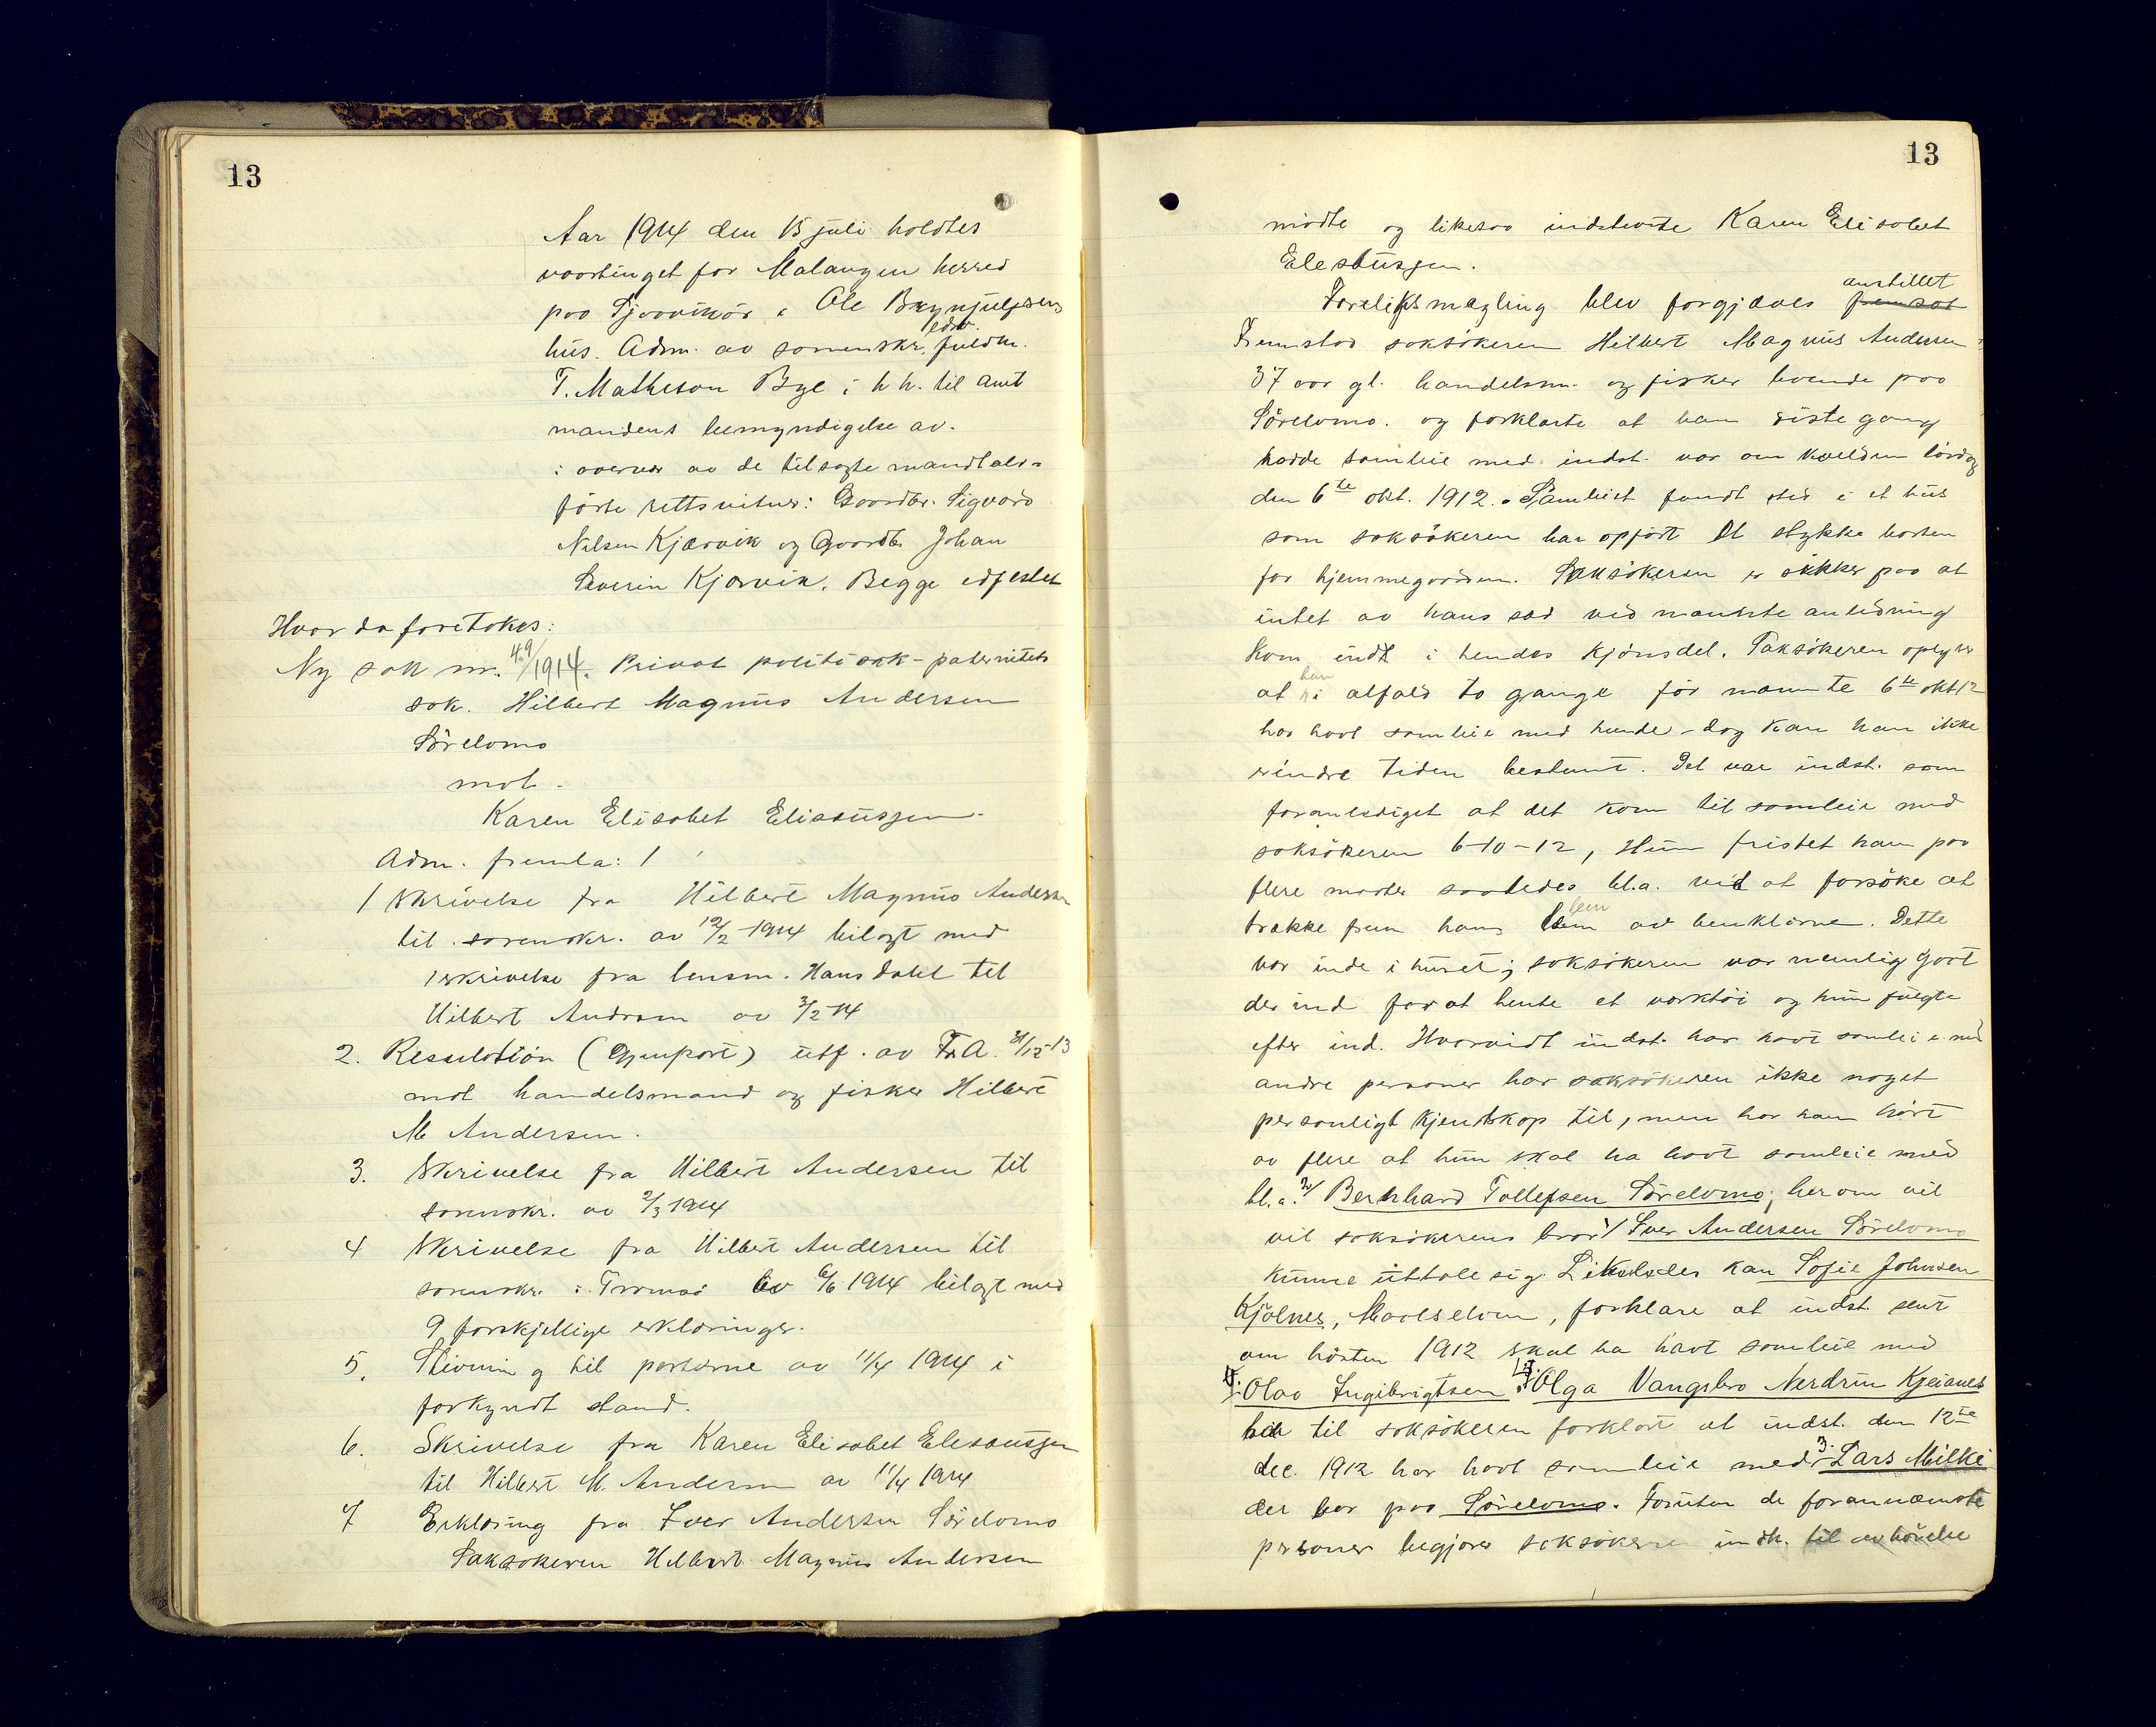 13
Aar 1914 den 15 juli holdtes
vaartinget for Malangen herred
paa i Ole Brynjulfsens
hus. Adm. av sorenskr. edsv. fuldm.
T. Matheson Bye i h.h. til amt
mandens bemyndigelse av.
i overvær av de tilsagte mandtals-
førte rettsvitner: Gaardbr. Sigvard
Nilsen Kjærvik og Gaardbr. Johan
Severin Kjærvik. Begge edfestet
Hvor da foretokes:
Ny sak nr. 49/1914. Privat politisak - paternitets
sak. Hilbert Magnus Andersen
Sörelvmo
mot.
Karen Elisabet Elisæussen
Adm. fremla: 1
1 Skrivelse fra Hilbert Magnus Andersen
til sorenskr. av 12/2 1914 bilagt med
1 skrivelse fra lensm. Hans Dahl til
Hilbert Andersen av 3/2-14
2. Resulution (Gjenpart) utf. av Tr.A. 31/12-13
mot handelsmand og fisker Hilbert
M Andersen.
3. Skrivelse fra Hilbert Andersen til
sorenskr. av 2/3 1914
4 Skrivelse fra Hilbert Andersen til
sorenskr. i Tromsø av 6/6 1914 bilagt med
9 forskjellige erklæringer.
5. Stevning til parterne av 11/4 1914 i
forkyndt stand.
6. Skrivelse fra Karen Elisabet Elesæussen
til Hilbert M. Andersen av 11/4 1914
7 Erklæring fra Iver Andersen Sörelvmo
Saksøkeren Hilbert Magnus Andersen
13
mödte og likesaa indstevnte Karen Elisabet
Elesæussen.
Foreliksmægling blev forgjæves anstillet
Fremstod saksökeren Hilbert Magnus Andersen
37 aar gl. handelsm. og fisker boende paa
Sörelvmo. og forklarte at han siste gang
hadde samleie med indst. var om kvelden lördag
den 6te okt. 1912. Samleiet fandt sted i et hus
som saksökeren har opfört et stykke borten
for hjemmegaarden. Saksökeren er sikker paa at
intet av hans sæd ved nævnte anledning
kom indt i hendes kjönsdel. Saksökeren oplyser
at han i alfald to gange för nævnte 6te okt 12
har havt samleie med hende - dog kan han ikke
erindre tiden bestemt. Det var indst. som
foranlediget at det kom til samleie med
saksökeren 6-10-12, Hun fristet ham paa
flere maater saaledes bl.a. ved at forsöke at
trække frem hans lem lem av benklærne. Dette
var inde i huset; saksökeren var nemlig gaat
der ind for at hente et værktöi og hun fulgte
efter ind. Hvorvidt indst. har havt samleie med
andre personer har saksökeren ikke noget
personligt kjendskap til, men har han hört
av flere at hun skal ha havt samleie med
bl.a. 2/ Bernhard Tollefsen Sörelvmo; herom vil
vil saksökerens bror 1/ Iver Andersen Sörelvmo
kunne uttale sig. Likeledes kan Sofie Johnsen
Kjölnes, Maalselven, forklare at indst. sent
om hösten 1912 skal ha havt samleie med
Olav Ingebrigtsen. Olga Vangsbro Nerdrum Kjeianes
har til saksökeren forklart at indst. den 12te
dec. 1912 har havt samleie med 3. Lars Milke
der bor paa Sörelvmo. Foruten de forannævnte
personer begjærer saksökeren indk. til avhörelse